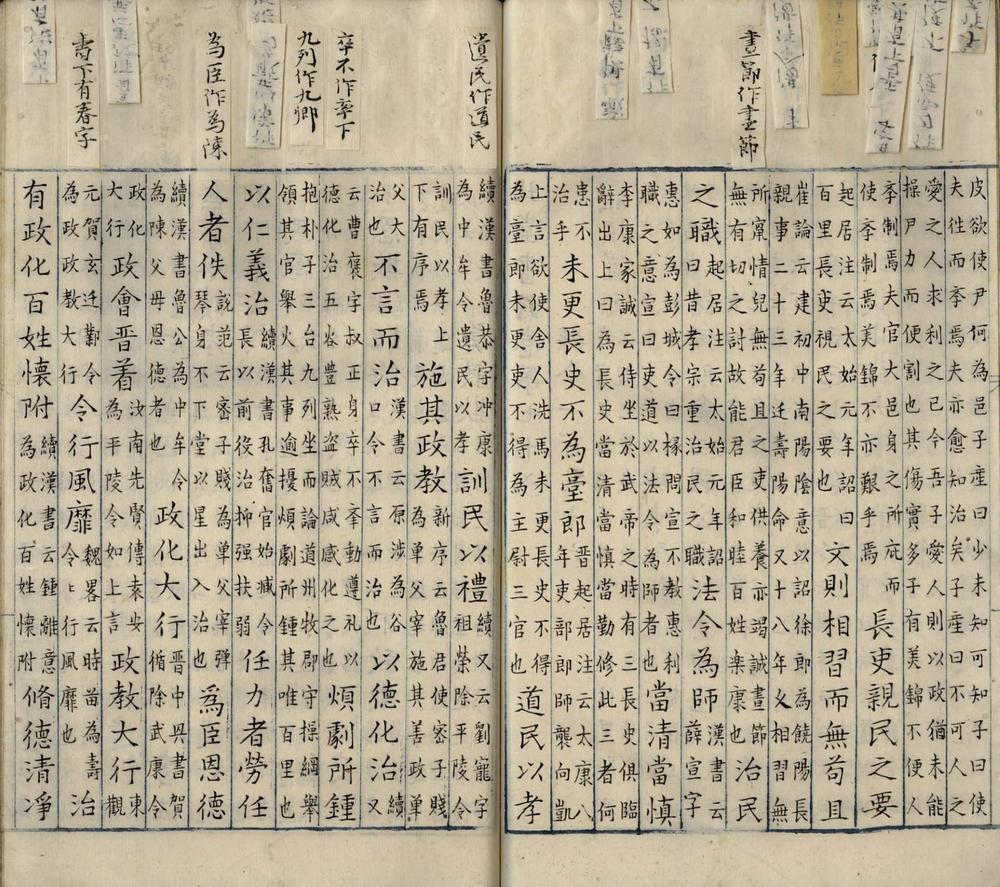 晝節作盡節
皮欲使尹何為邑子産曰少未知可知子曰使
夫徃而斈焉夫亦愈知治矣子産曰不可人之
愛之人求利之已令吾子愛人則以政猶未能
操尸力而便割也其傷實多子有美錦不便人
斈制焉夫官大邑身之所庇而
使斈制焉美錦不亦艱乎焉
長吏親民之要
起居注云太始元年詔曰
百里長吏視民之要也
文則相習而無苟且
崔論云建初中南陽陰意以詔徐郎為饒陽長
親事二十三年迁壽陽命又十八年夊相習無
所甯情皃無苟且之吏供養亦竭誠晝節
無有切之討故能君臣和睦百姓楽康也
治民
之職
起居注云太始元年詔
曰昔孝宗重治民之職
法令為師
漢書云
薛宣字
惠如為彭城令曰椽問宣不教惠利
職之意宣曰吏道以法令為師者也
當清當慎
李康家誠云侍坐於武帝之時有三長史俱臨
辭出上曰為長史當清當慎當勤修此三者何
患不
治乎
未更長史不為臺郎
晋起居注云太康八
年吏部郎師襲向凱
上言欲使舍人洗馬未更長史不得
為臺郎未更吏不得為主尉三官也
道民以孝
遺民作道民
卒不作率下
九列作九卿
為臣作為陳
書下有春字
續漢書魯恭字冲康
為中牟令遺民以孝
訓民以禮
續又云劉寵字
祖榮除平陵令
訓民以孝上
下有序焉
施其政教
新序云魯君使宓子賤
為单父宰施其善政单
父大
治也
不言而治
漢書云原涉為谷
口令不言而治也
以德化治
續
又
云曹褒字叔正身卒不夆動遵礼以
德化治五谷豊熟盗賊感化之也
煩劇所鍾
抱朴子三台九列坐而論道州牧郡守操綱舉
領其官舉火其事逾擾煩劇所鍾其唯百里也
以仁義治
續漢書孔奮官始臧令
長以前後治抑强扶弱
任力者勞任
人者佚
説苑云宓子賤為单父宰弹
琴身不下堂以星出入治也
為臣恩德
續漢書魯公為中牟令
為陳父母恩德者也
政化大行
晋中興書賀
循除武康令
政化
大行
政會晋着
汝南先賢傳袁安
為平陵令如上言
政教大行
東
觀
元賀玄迁鄞令
為政政教大行
令行風靡
魏畧云時苗為壽
令〻行風靡也
治
有政化百姓懷附
續漢書云鍾離意
為政化百姓懷附
脩德清净